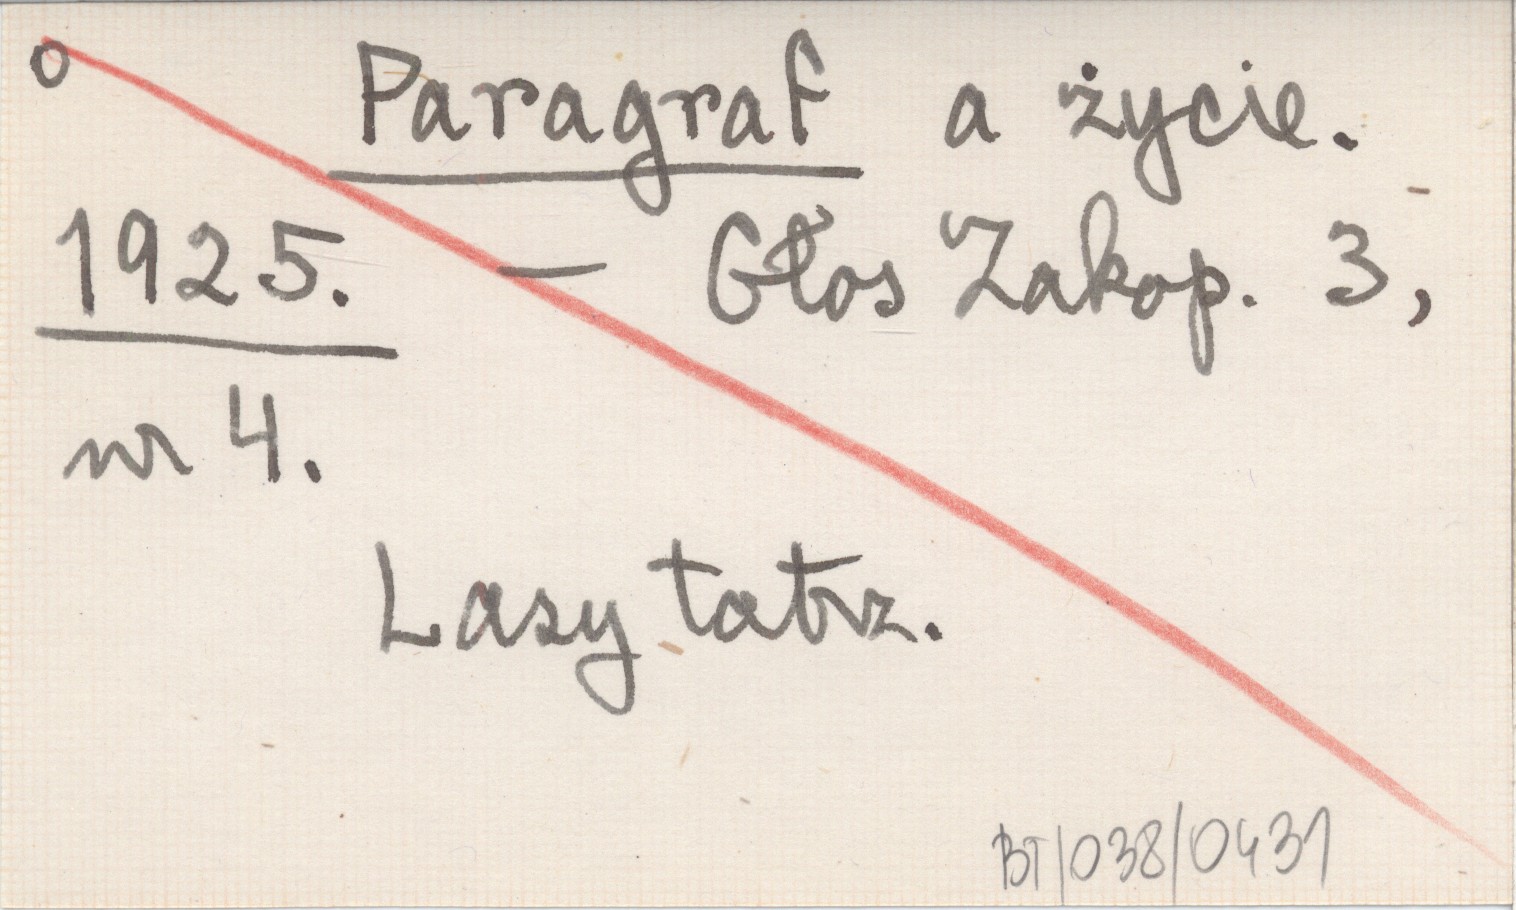 o Paragraf a życie.
1925. — Głos Zakop. 3,
nr 4.
Lasy tatrz.
BT/038/0431